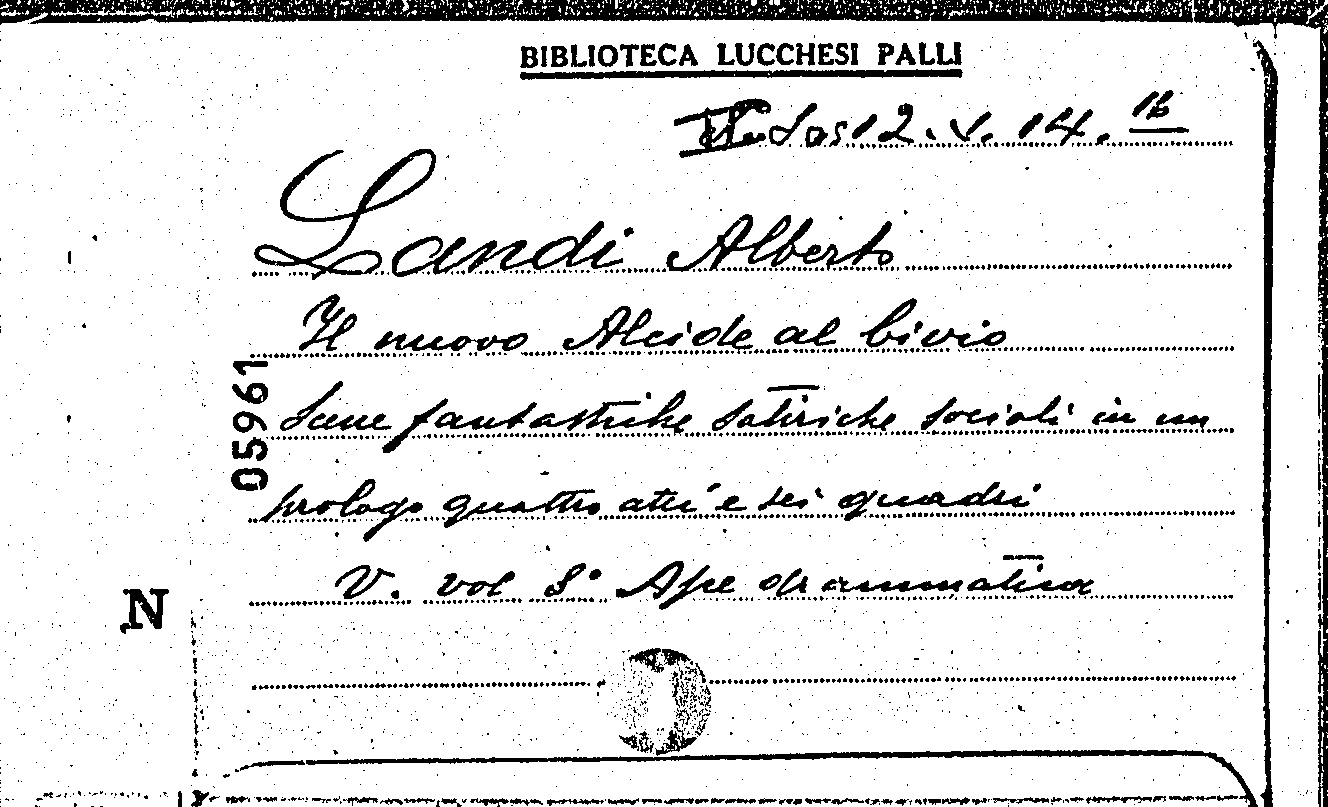 BIBLIOTECA LUCCHESI PALLI
2. V. 14. 16
Landi Alberto
Il nuovo Alcide al bivio
Scene fantastiche satiriche sociali in un
prologo quattro atti e sei quadri
V. vol 8° Ape drammatica
05961
N